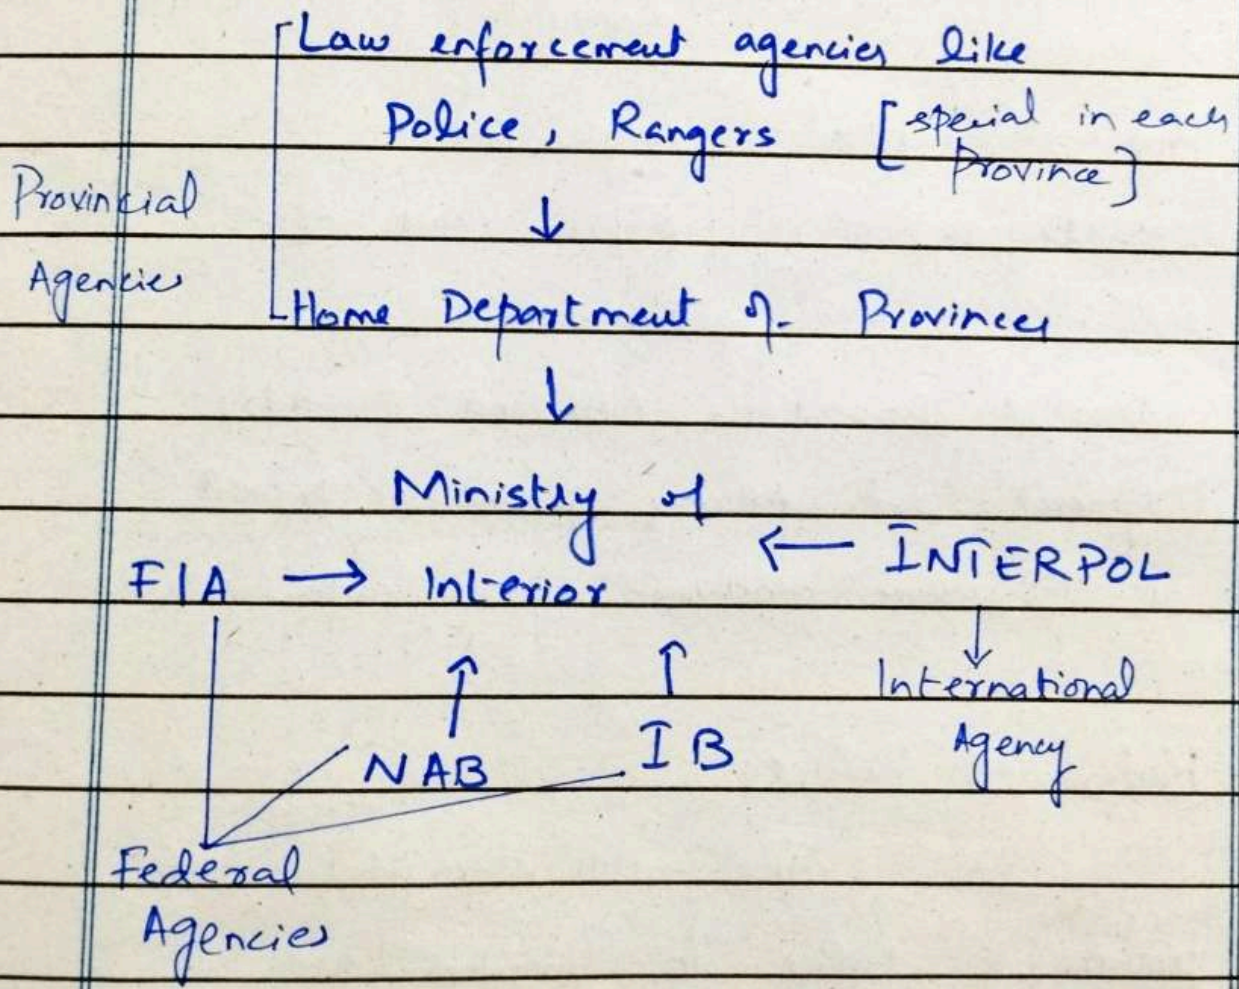 Law enforcement agencies like
Police, Rangers [special in each
Province]
Provincial
Agencies
↓
Home Department of Provinces
↓
Ministry of
Interior
FIA →
← INTERPOL
↑
↑
↓
International
Agency
NAB
IB
Federal
Agencies